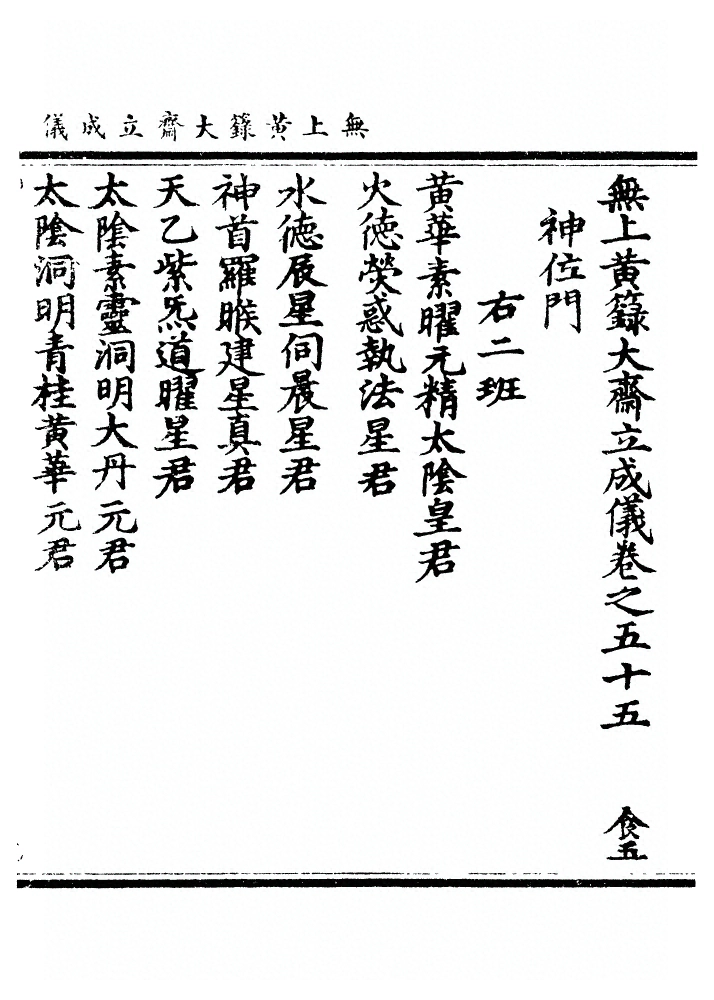 無上黄籙大齋立成儀
無上黄籙大齋立成儀卷之五十五 食五
神位門
右二班
黄華素曜元精太陰皇君
火德熒惑執法星君
水德辰星伺晨星君
神首羅睺建星真君
天乙紫炁道曜星君
太陰素靈洞明大丹元君
太陰洞明青桂黄華元君